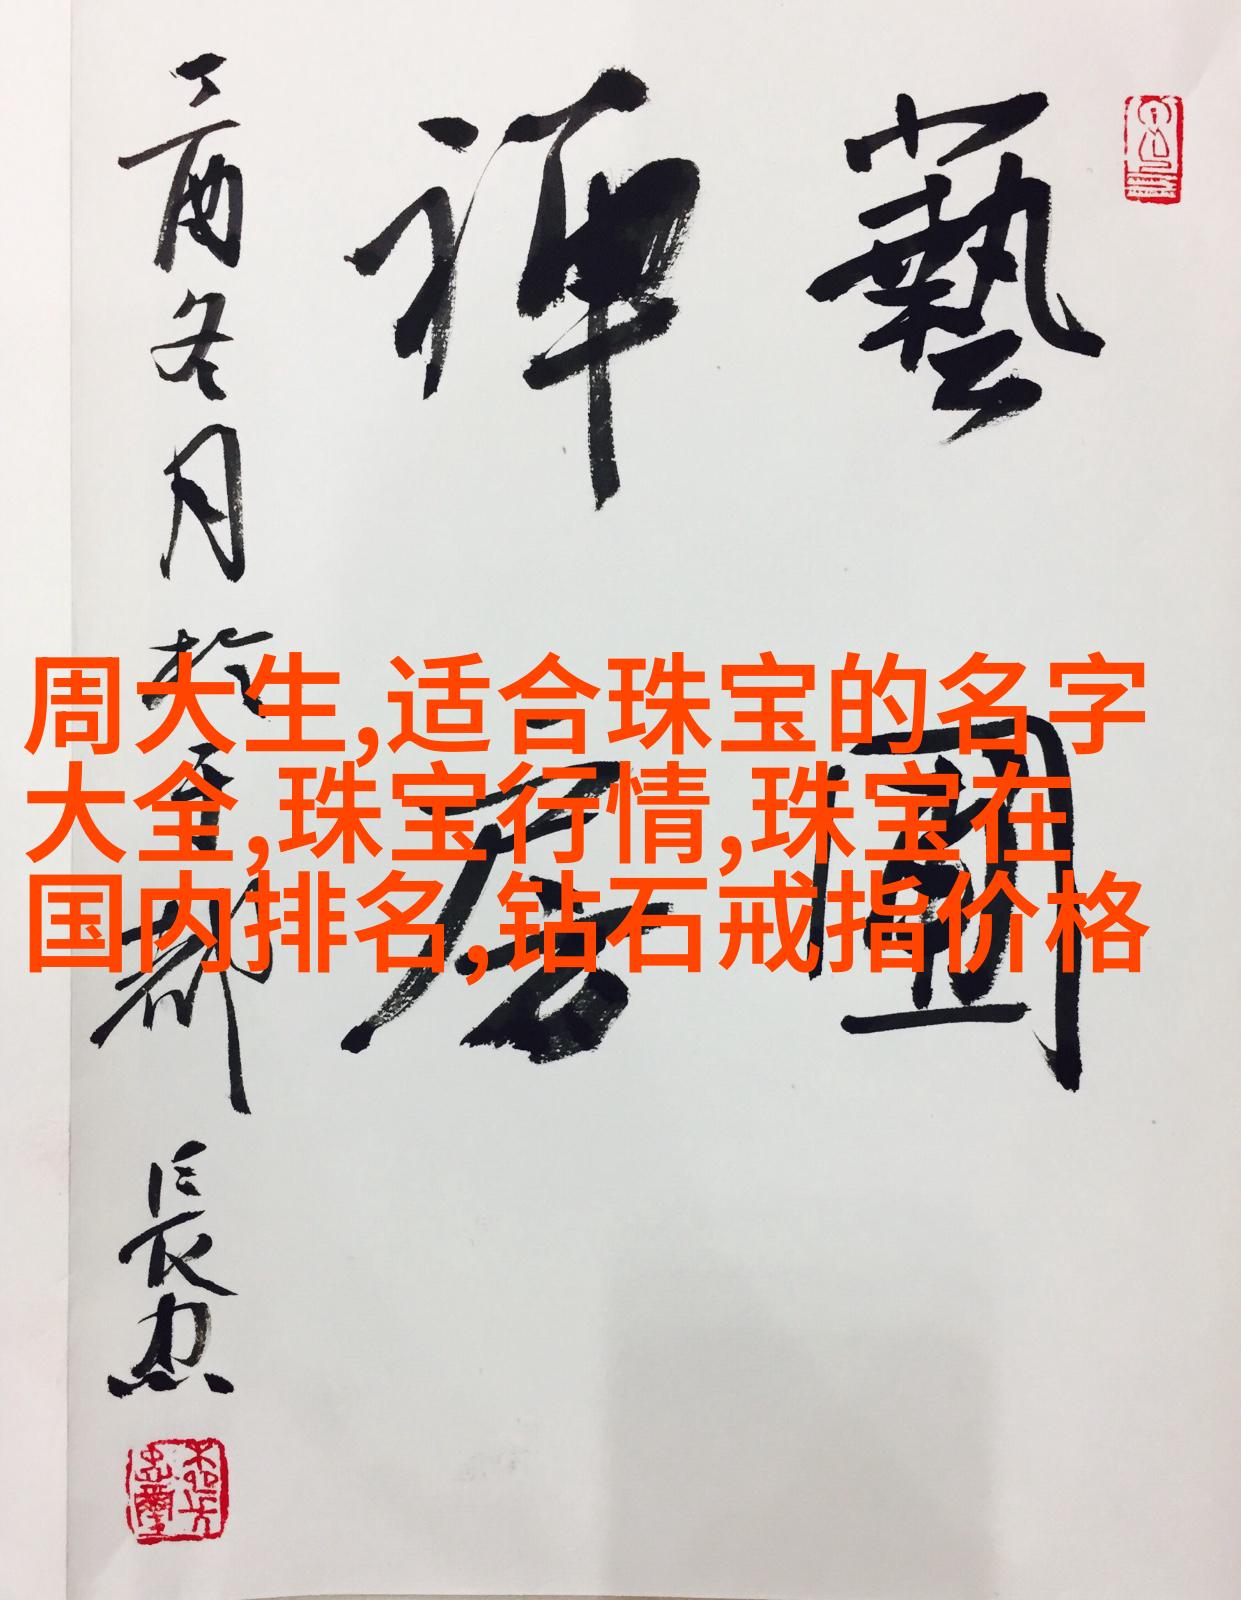 藝圃
禅居
丁酉冬月於
長忠
周大生,适合珠宝的名字
大全,珠宝行情,珠宝在
国内排名,钻石戒指价格